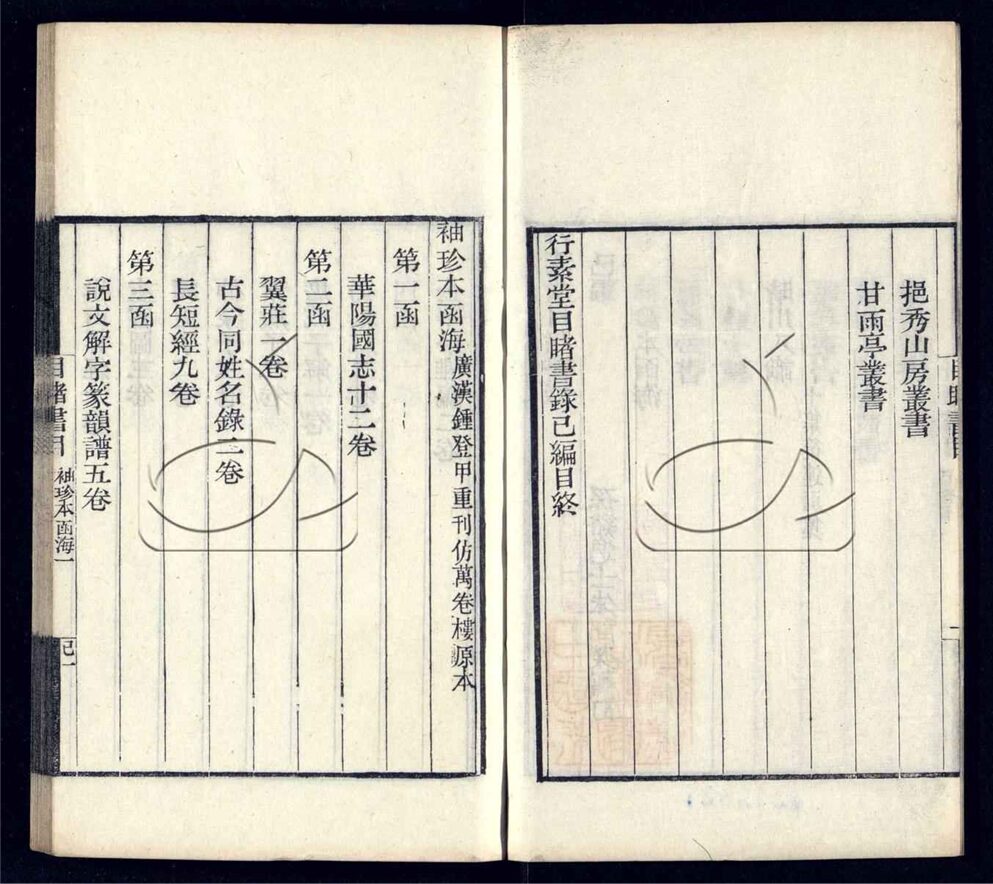 挹秀山房叢書
甘雨亭叢書
行素堂目睹書錄己編目終
袖珍本函海廣漢鍾登甲重刊仿萬卷樓原本
第一函
華陽國志十二卷
第二函
翼莊一卷
古今同姓名錄二卷
長短經九卷
第三函
說文解字篆韻譜五卷
目睹書目
袖珍本函海一
己一